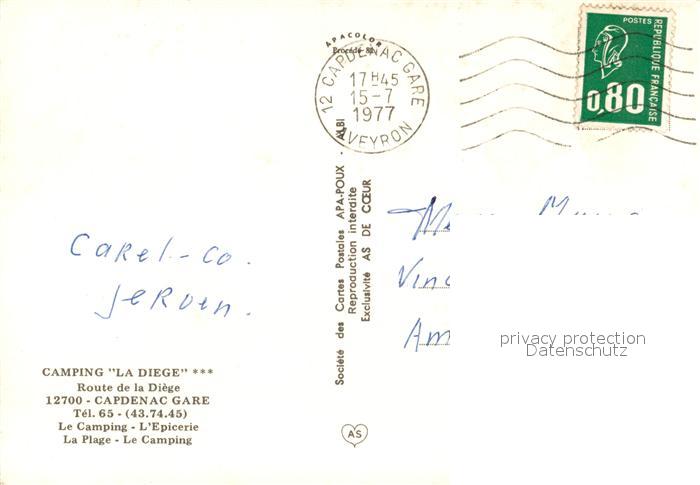 APACOLOR
12 CAPDENAC GARE
17H45
15-7
1977
AVEYRON
POSTES
REPUBLIQUE FRANÇAISE
0,80
Société des Cartes Postales APA-POUX - ALBI
Reproduction interdite
Exclusivité AS DE CŒUR
Carel-Co.
Jeroen.
privacy protection
Datenschutz
CAMPING "LA DIEGE" ***
Route de la Diège
12700 - CAPDENAC GARE
Tél. 65 - (43.74.45)
Le Camping - L'Epicerie
La Plage - Le Camping
AS